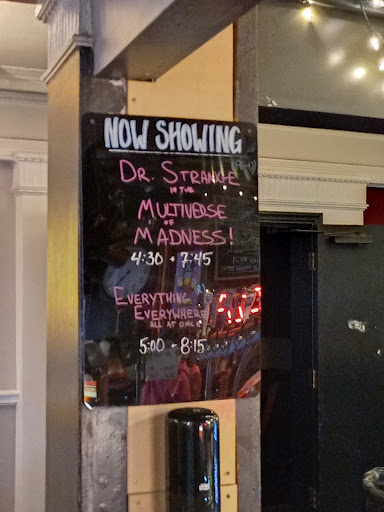 NOW SHOWING
DR. STRANGE
IN THE
MULTIVERSE
OF
MADNESS!
4:30 + 7:45
EVERYTHING
EVERYWHERE
ALL AT ONCE
5:00 + 8:15